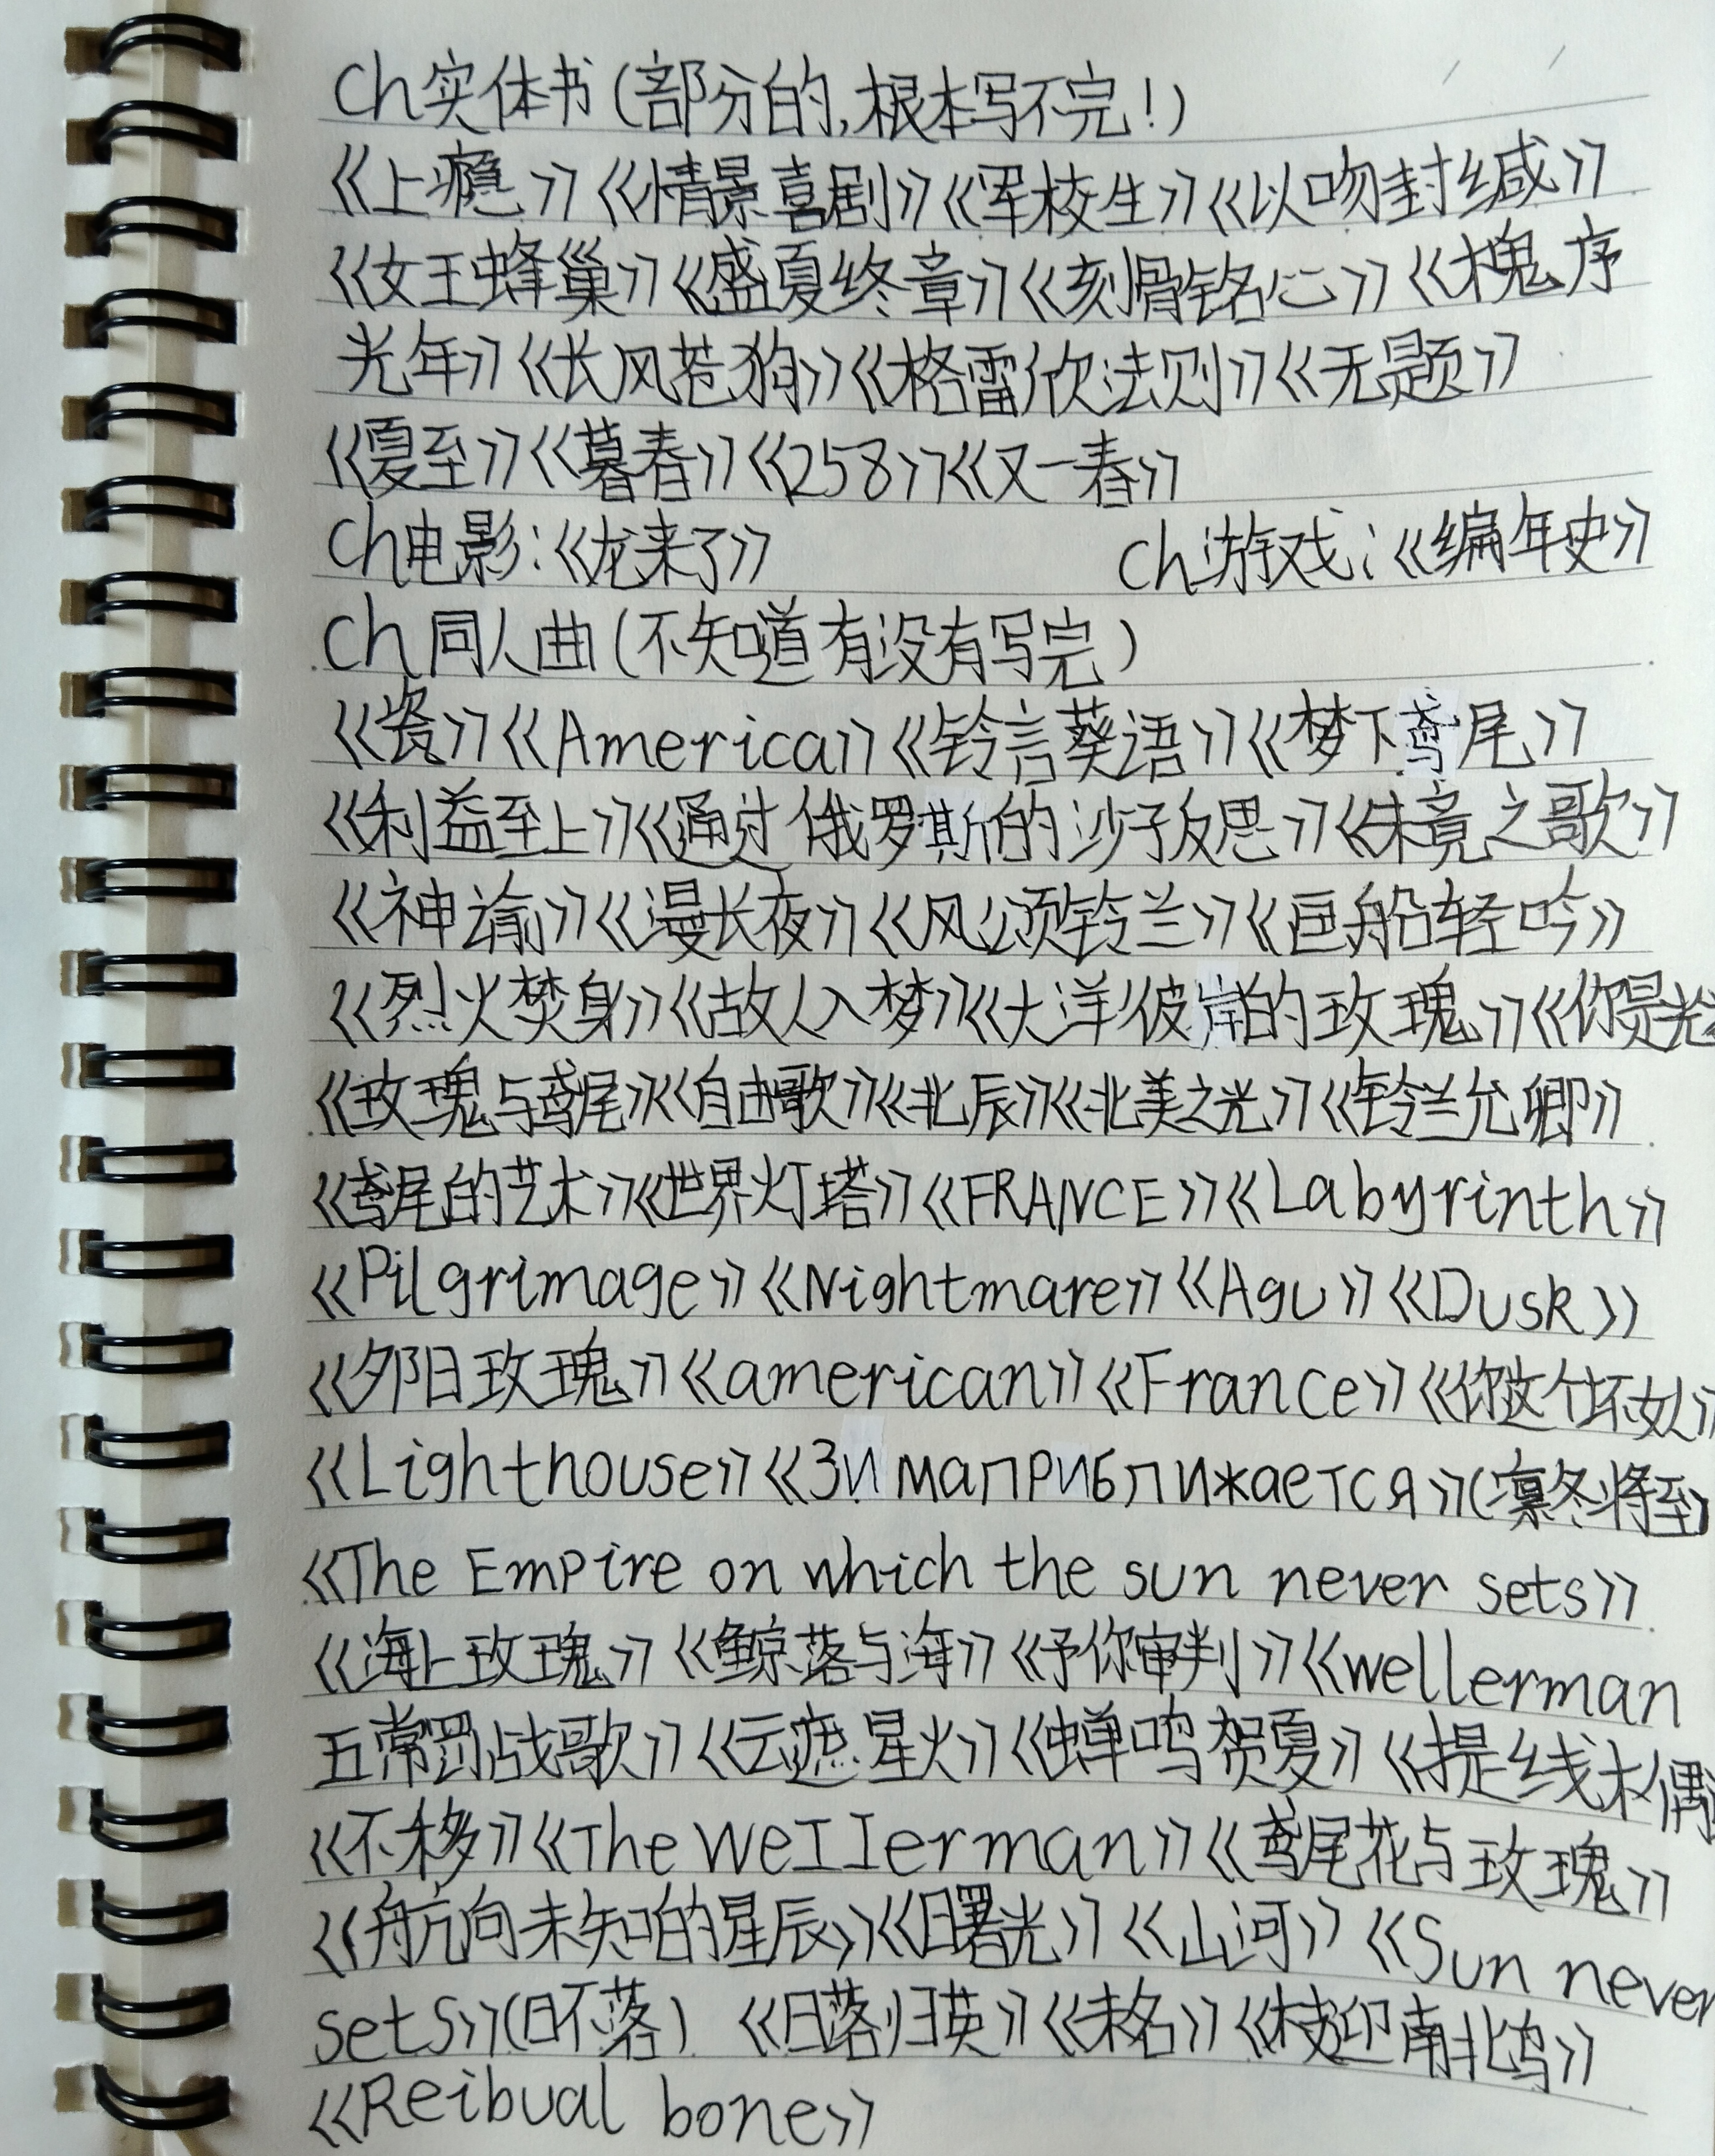 ch实体书(部分的,根本写不完!)
《上瘾》《情景喜剧》《军校生》《以吻封缄》
《女王蜂巢》《盛夏终章》《刻骨铭心》《槐序
光年》《长风苍狗》《格雷欣法则》《无题》
《夏至》《暮春》《258》《又一春》
ch电影:《龙来了》 ch游戏:《编年史》
ch同人曲(不知道有没有写完)
《瓷》《America》《铃言葵语》《梦下鸢尾》
《利益至上》《通过俄罗斯的沙子反思》《朱竟之歌》
《神谕》《漫长夜》《风颂铃兰》《巨船轻吟》
《烈火焚身》《故人入梦》《大洋彼岸的玫瑰》《你是光
《玫瑰与鸢尾》《自由歌》《北辰》《北美之光》《铃兰允卿》
《鸢尾的艺术》《世界灯塔》《FRANCE》《Labyrinth》
《Pilgrimage》《Nightmare》《Agu》《Dusk》
《夕阳玫瑰》《american》《France》《你这个坏女人》
《Lighthouse》《Зима приближается》(凛冬将至)
《The Empire on which the sun never sets》
《海上玫瑰》《鲸落与海》《予你审判》《wellerman
五常罚战歌》《云遮星火》《蝉鸣贺夏》《提线木偶》
《不移》《The Wellerman》《鸢尾花与玫瑰》
《航向未知的星辰》《曙光》《山河》《Sun never
sets》(日不落) 《日落归英》《未名》《枝迎南北鸟》
《Reibual bone》